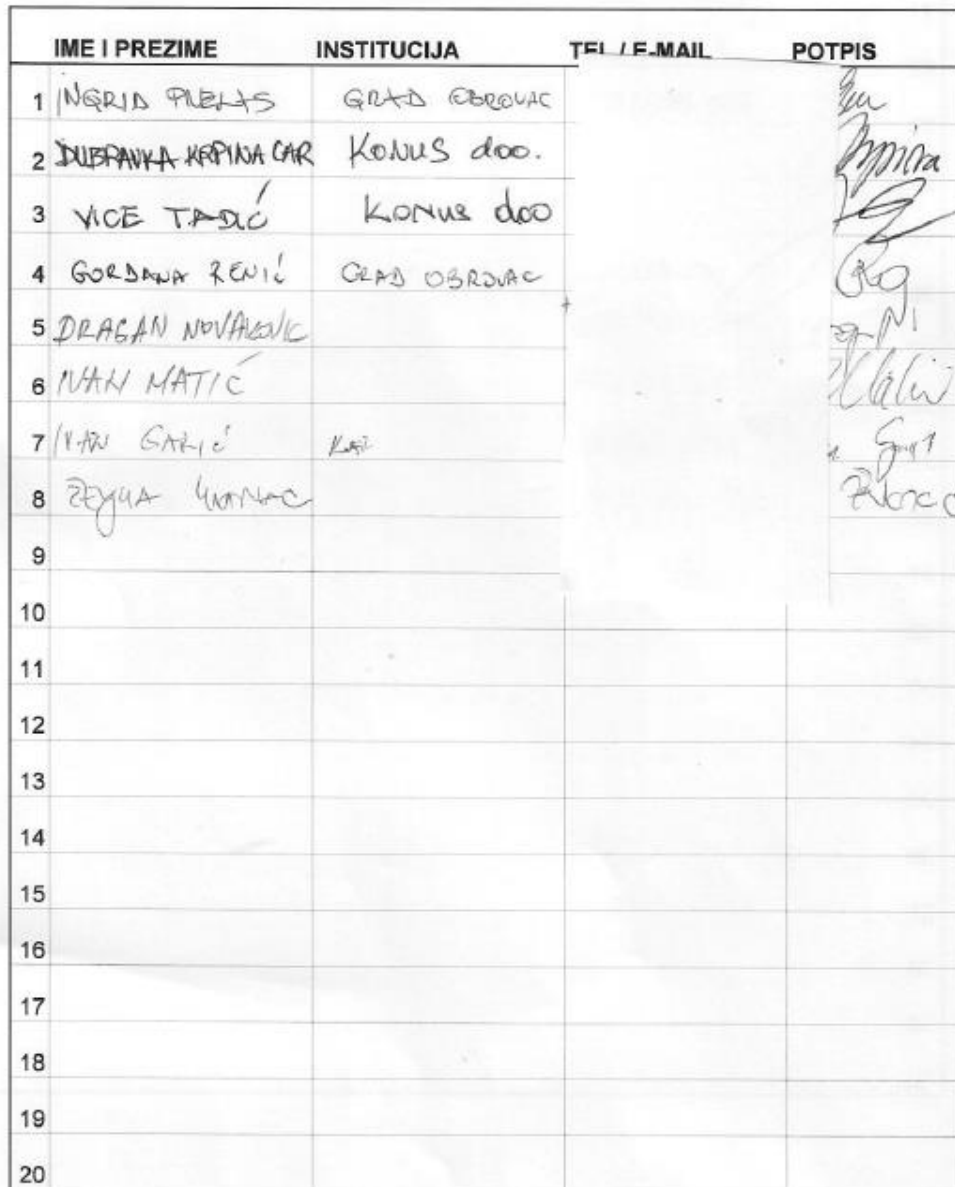 IME I PREZIME INSTITUCIJA TEL / E-MAIL POTPIS
1 INGRID PRELAS GRAD OBROVAC
2 DUBRAVKA KRPINA CAR KONUS doo.
3 VICE TADIĆ KONUS doo
4 GORDANA RENIĆ GRAD OBROVAC
5 DRAGAN NOVAKOVIC
6 IVAN MATIĆ
7 IVAN GARIĆ
8
9
10
11
12
13
14
15
16
17
18
19
20